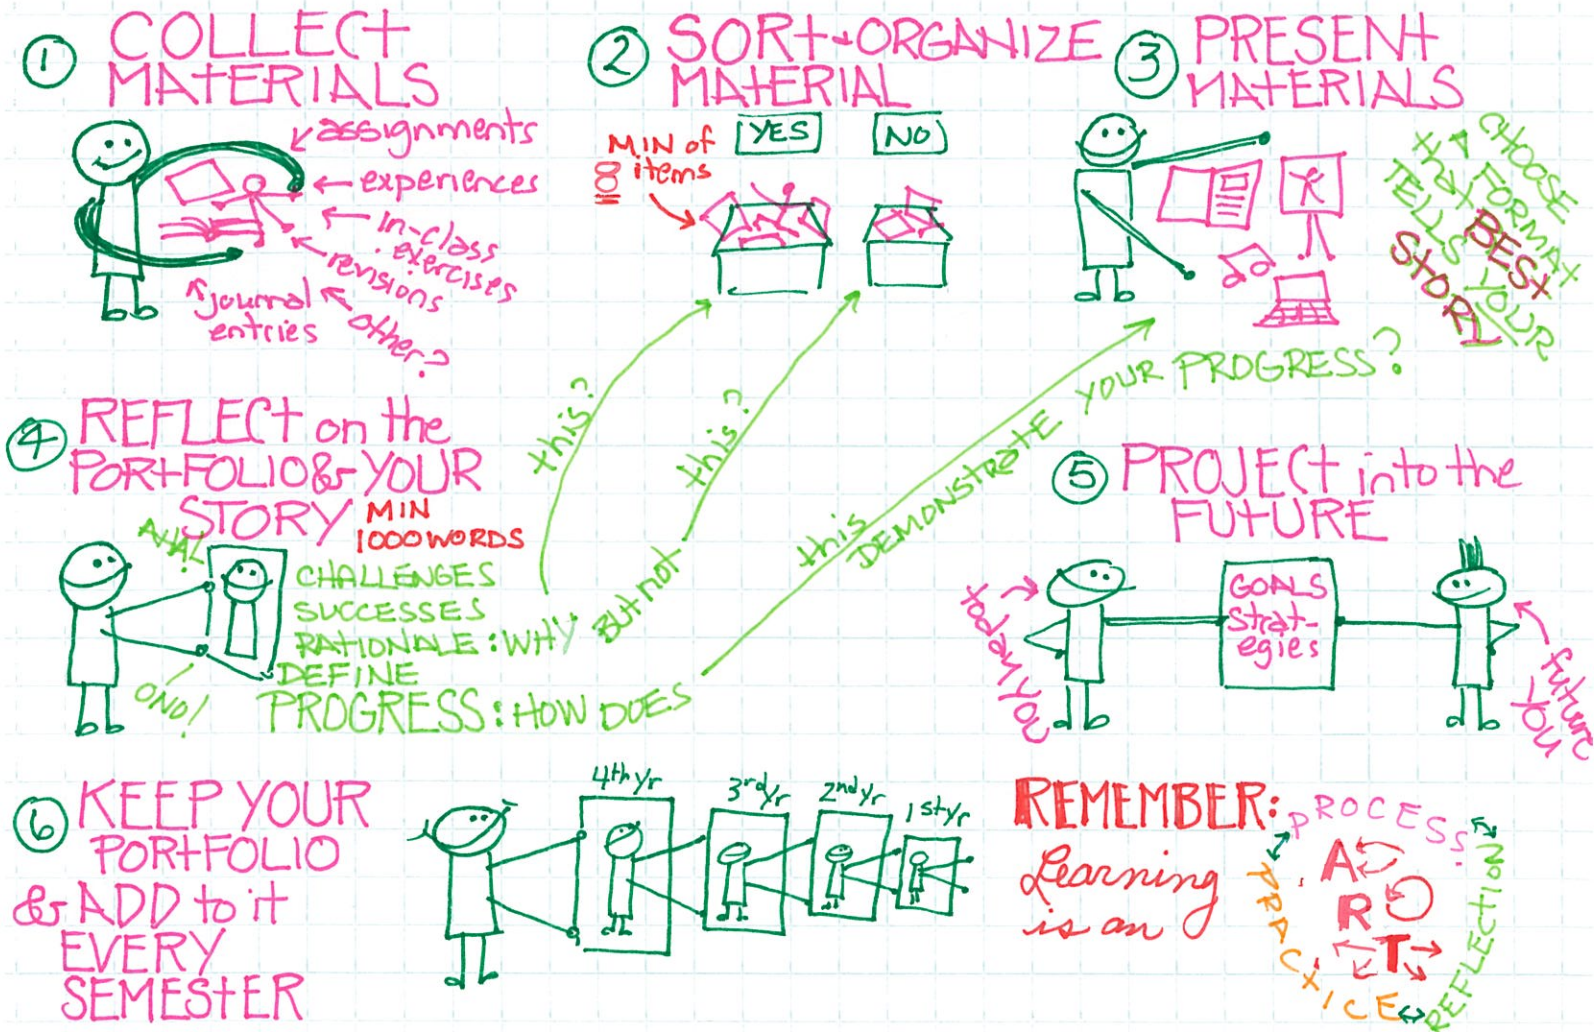 ① COLLECT
MATERIALS
assignments
experiences
in-class
exercises
revisions
journal
entries
other?
② SORT + ORGANIZE
MATERIAL
YES
NO
MIN of
8 items
③ PRESENT
MATERIALS
CHOOSE
A FORMAT
that BEST
TELLS YOUR
STORY
④ REFLECT on the
PORTFOLIO & YOUR
STORY
MIN
1000 WORDS
AHA!
ONO!
CHALLENGES
SUCCESSES
RATIONALE: WHY
this?
BUT not
this?
DEFINE
PROGRESS: HOW DOES
this
DEMONSTRATE YOUR PROGRESS?
⑤ PROJECT into the
FUTURE
today YOU
GOALS
Strat-
egies
future
YOU
⑥ KEEP YOUR
PORTFOLIO
& ADD to it
EVERY
SEMESTER
4th yr
3rd yr
2nd yr
1st yr
REMEMBER:
Learning
is an
ART
PROCESS
REFLECTION
PRACTICE